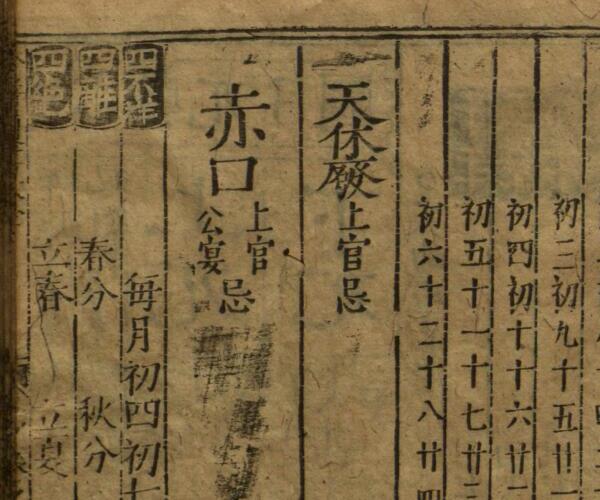 初三初九十五廿
初四初十十六廿
初五十一十七廿
初六十二十八廿四
天休廢上官忌
赤口上官公宴忌
四不祥每月初四初七
四離春分秋分
四絕立春立夏